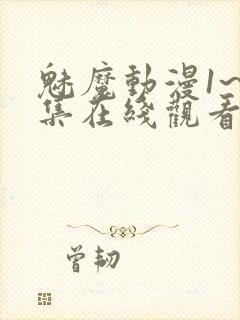 魅魔動漫1~
集在綫觀看
曾韌